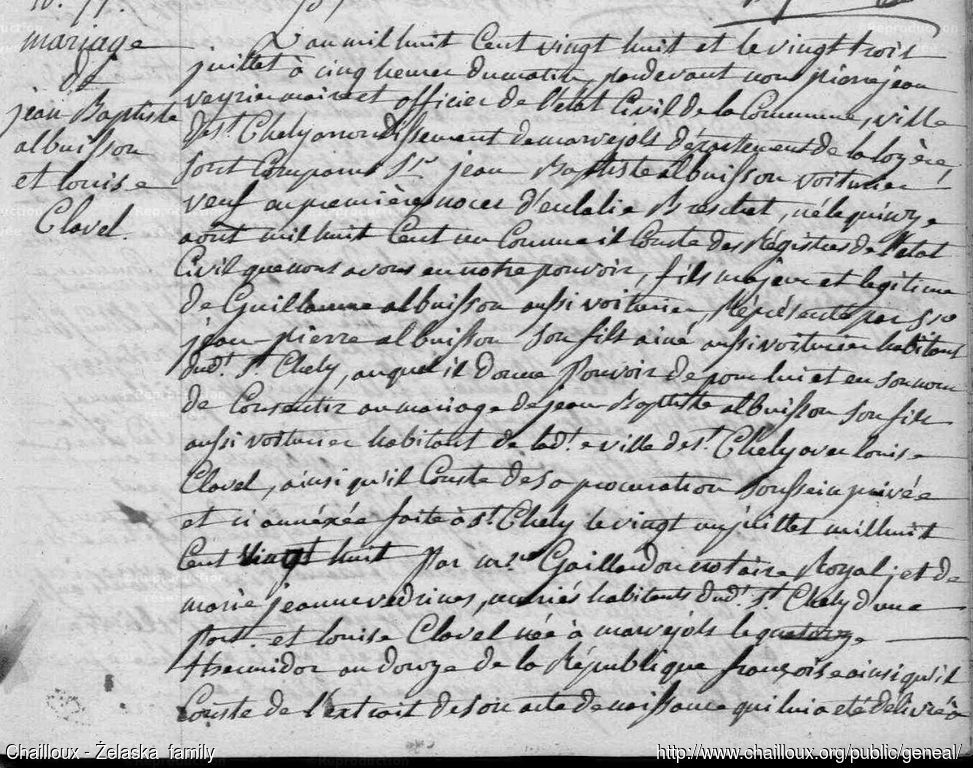 mariage
de
jean Baptiste
albuisson
et louise
Clavel.
L'an mil huit Cent vingt huit et le vingt trois
juillet à cinq heures du matin, pardevant nous pierre jean
veyrier maire et officier de l'état Civil de la Commune, ville
de st. Chely arrondissement de marvejols département de la lozère,
sont Comparus Sr. jean Baptiste albuisson voiturier
veuf en premières noces d'eulalie Braschet, né le quinze
aout mil huit Cent un Comme il Conste des Régistres de l'état
Civil que nous avons en notre pouvoir, fils majeur et legitime
de Guillaume albuisson aussi voiturier, Réprésenté par
jean-pierre albuisson son fils ainé aussi voiturier habitant
dudt. st. Chely, auquel il donne pouvoir de pour lui et en son nom
de Consentir au mariage de jean Baptiste albuisson son fils
aussi voiturier habitant de ladt.e ville de st. Chely avec louise
Clavel, ainsi qu'il Conste de sa procuration sousseing privée
et ci annéxée faite à st. Chely le vingt un juillet mil huit
Cent vingt huit par mre. Gaillardon notaire Royal, et de
marie jeanne vedrines, mariés habitants dudt. st. Chely d'une
part. et louise Clavel née à marvejols le quatorze
thermidor an douze de la République françoise ainsi qu'il
Conste de l'extrait de son acte de naissance qui lui a eté délivré à
Chailloux - Żelaska family
http://www.chailloux.org/public/geneal/